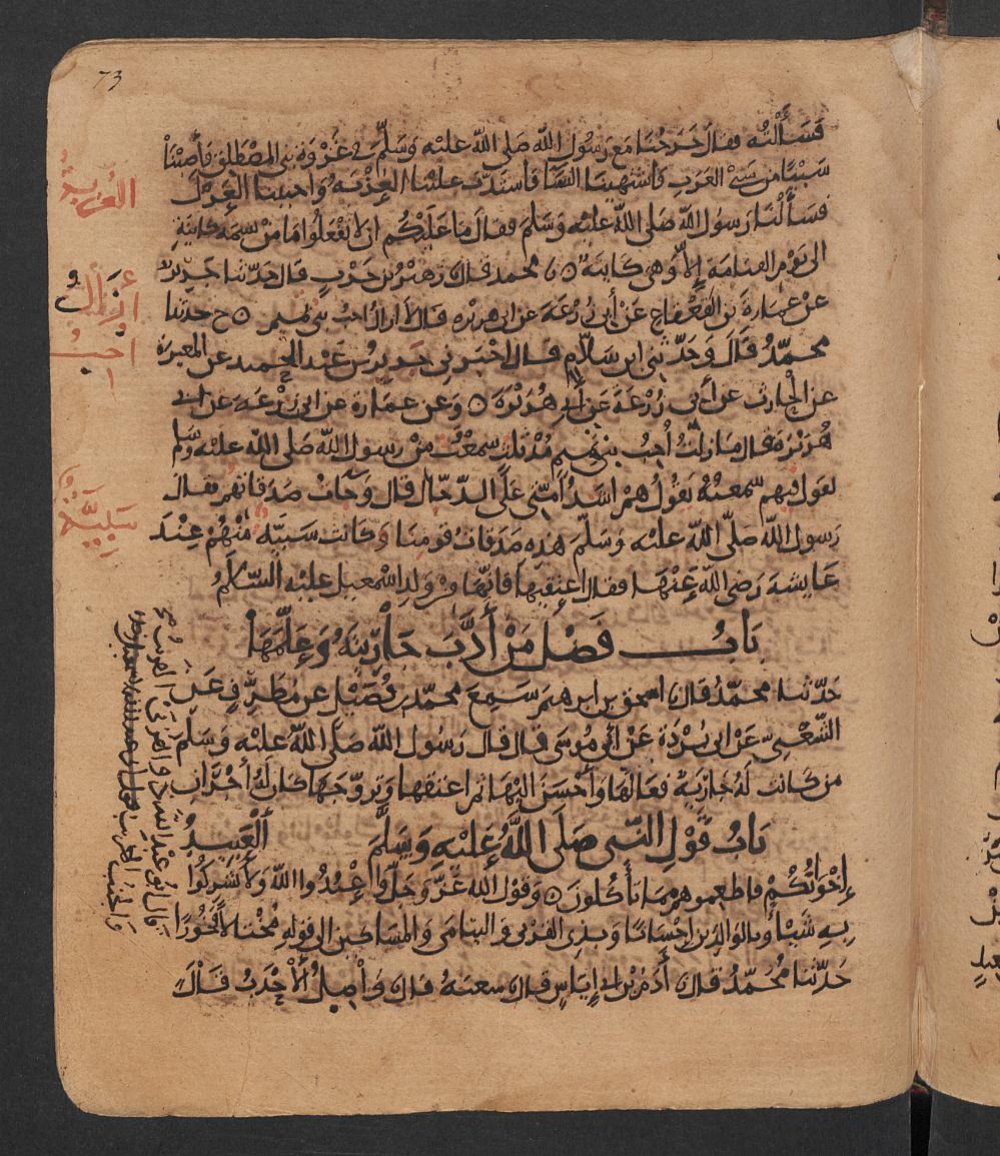 73
فَسَأَلْتُه فقال خَرَجْنَا مَعَ رَسُولِ الله صَلى الله عليْه وَسَلَّم في غَزْوَة بني المصْطَلِق فأصبْنَا
سَبْيًا من سَبْي العَرَبِ فاشتهينا النسَا فاشتدّت علَيْنا العُزْبَه وَاحببنا العَزْلَ
فسَأَلْنا رَسولَ اللهِ صَلى الله عليْه وَسَلم فقال مَا عَلَيْكم ان لا تفعَلُوا مَا مِنْ نسمَه كاينَةٍ
الى يَوْم القيامَة إِلاَّ وهي كَاينَة ٥ محمد قال زهَيْرُ بن حَرْبٍ قال حَدّثنا جَريرٌ
عن عمَارةَ بن القَعْقاع عَنْ أبي زُرْعَة عَن ابي هريْره قال لا أزال احبُ بني تميم ٥ ح حدثنا
محمّدٌ قالَ وَحَدّثني ابن سَلاَّم قال اخْبَرني جَريرُ بن عَبْد الحميد عن المغيرَة
عن الحارث عن أبي زُرْعَة عَن أبي هُرَيْرَة ٥ وَعن عمَارة عن ابي زُرْعَه عن ابي
هُرَيْرَة قال ما زلتُ أُحِبُّ بني تميم مُذ ثلث سمعْتُ من رسول الله صَلى الله عليْه وسلم
يقول فيهم سمعتهُ يَقُولُ هم اشدُّ امّتي عَلَى الدّجّال قال وَجَاتْ صَدقَاتهم فقال
رَسول الله صَلى الله عليْه وَسَلَّم هذِه صَدَقَاتُ قومنا وَكانت سَبيَّه مِنْهُم عِنْدَ
عَايشه رَضي الله عَنْهَا فقال اعتقيها فانّها من وَلد اسْمعيل عليْه السَّلامُ
بَابُ فَضْل مَنْ أَدَّبَ جَارِيَتَهُ وَعَلَّمَهَا
حَدّثنا محمّدٌ قالَ اسحق بن ابرهيم سَمِعَ محمّد بن فُضَيْل عن مُطَرّفٍ عَنِ
الشَّعْبيّ عَنْ ابي بُرْدَة عَنْ أبي مُوسَى قال قال رَسُول الله صَلى الله عليْه وَسَلم
من كَانت لَهُ جَاريَةٌ فعالَهَا وَأَحْسَنَ اليْهَا ثم اعتقهَا وَتزوّجَهَا كان لهُ أَجْرَانِ
بَابُ قَوْلِ النَّبي صَلَى اللَّهُ عَلَيْهِ وَسَلَّم الْعَبِيدُ
إخْوَانُكُمْ فاطعموهم ممّا تأكُلونَ ٥ وَقَوْل الله عَزّ وَجَلَّ وَاعْبُدُوا اللهَ وَلا تُشْرِكُوا
بِهِ شَيْـًا وَبالوَالِدَيْن احْسَانًا وَبِذِي القُرْبَى وَاليتَامَى وَالمسَاكين الى قوله مُخْتالاً فَخُورًا
حَدّثنا مُحَمّدٌ قالَ آدَمُ بن ابي إيَاسٍ قال شعبَهُ قال وَاصِلٌ الأَحْدَبُ قَالَ
العُزبةُ
أزَالُ
احِبُّ
سَبِيَّةٌ